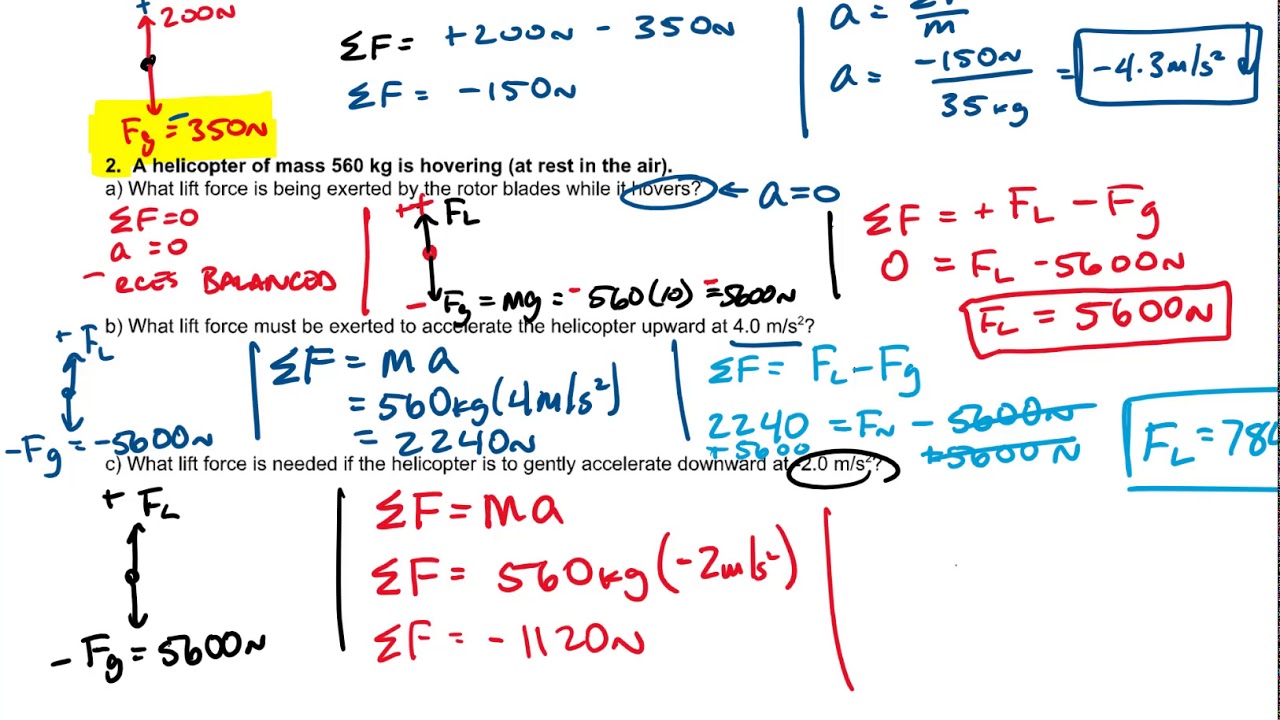 +
200N
ΣF = +200N - 350N
ΣF = -150N
Fg = 350N
a = ΣF/m
a = -150N/35kg = -4.3m/s² ↓
2. A helicopter of mass 560 kg is hovering (at rest in the air).
a) What lift force is being exerted by the rotor blades while it hovers? ← a=0
ΣF=0
a =0
BALANCED
+ FL
- Fg = mg = - 560(10) = -5600N
ΣF = + FL - Fg
0 = FL -5600N
FL = 5600N
b) What lift force must be exerted to accelerate the helicopter upward at 4.0 m/s²?
+ FL
-Fg = -5600N
ΣF = ma
= 560kg(4m/s²)
= 2240N
ΣF = FL - Fg
2240 = FN - 5600N
+5600 +5600N
FL = 78
c) What lift force is needed if the helicopter is to gently accelerate downward at -2.0 m/s²?
+ FL
- Fg = 5600N
ΣF = ma
ΣF = 560kg(-2m/s²)
ΣF = -1120N